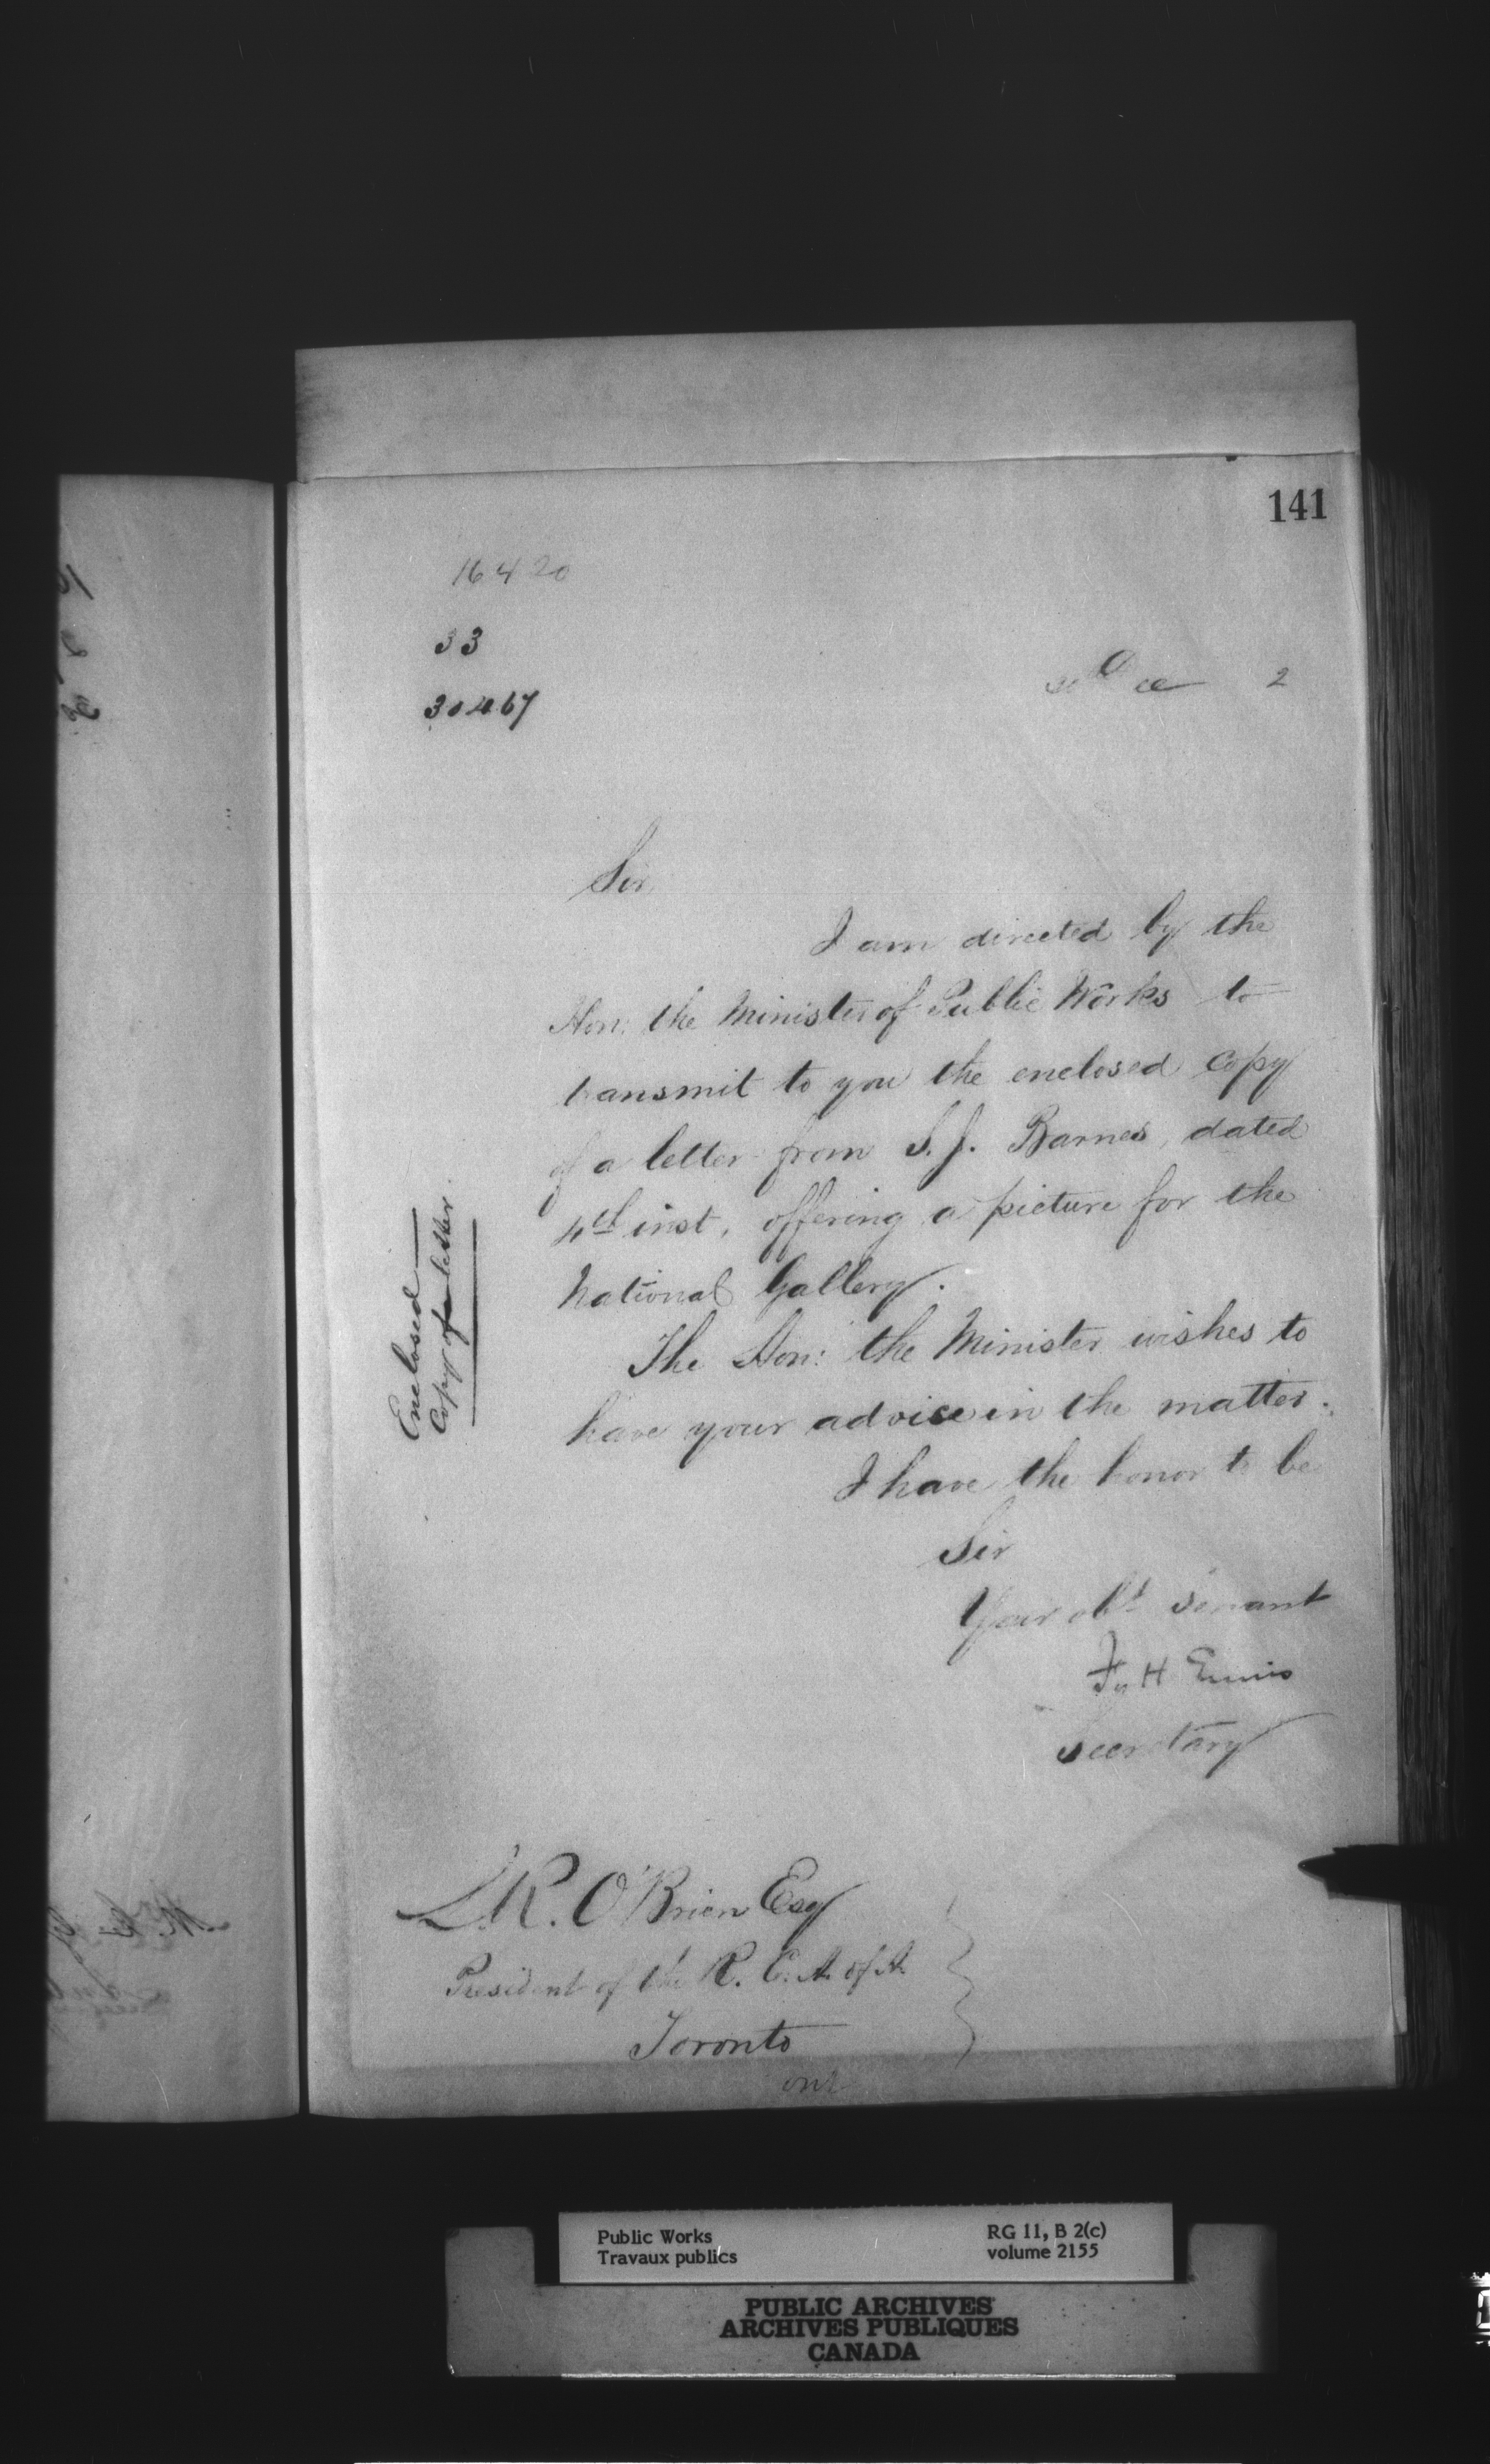 141
16420
33
30467
Dec 2
Sir,
I am directed by the
Hon: the Minister of Public Works to
transmit to you the enclosed copy
of a letter from S. J. Barnes, dated
4th inst, offering a picture for the
National Gallery.
The Hon: the Minister wishes to
have your advice in the matter.
I have the honor to be
Sir
Your obt servant
F. H. Ennis
Secretary
Enclosed
Copy of a letter.
L. R. O'Brien Esq
President of the R. C. A. of A.
Toronto
Ont
Public Works
Travaux publics
RG 11, B 2(c)
volume 2155
PUBLIC ARCHIVES
ARCHIVES PUBLIQUES
CANADA